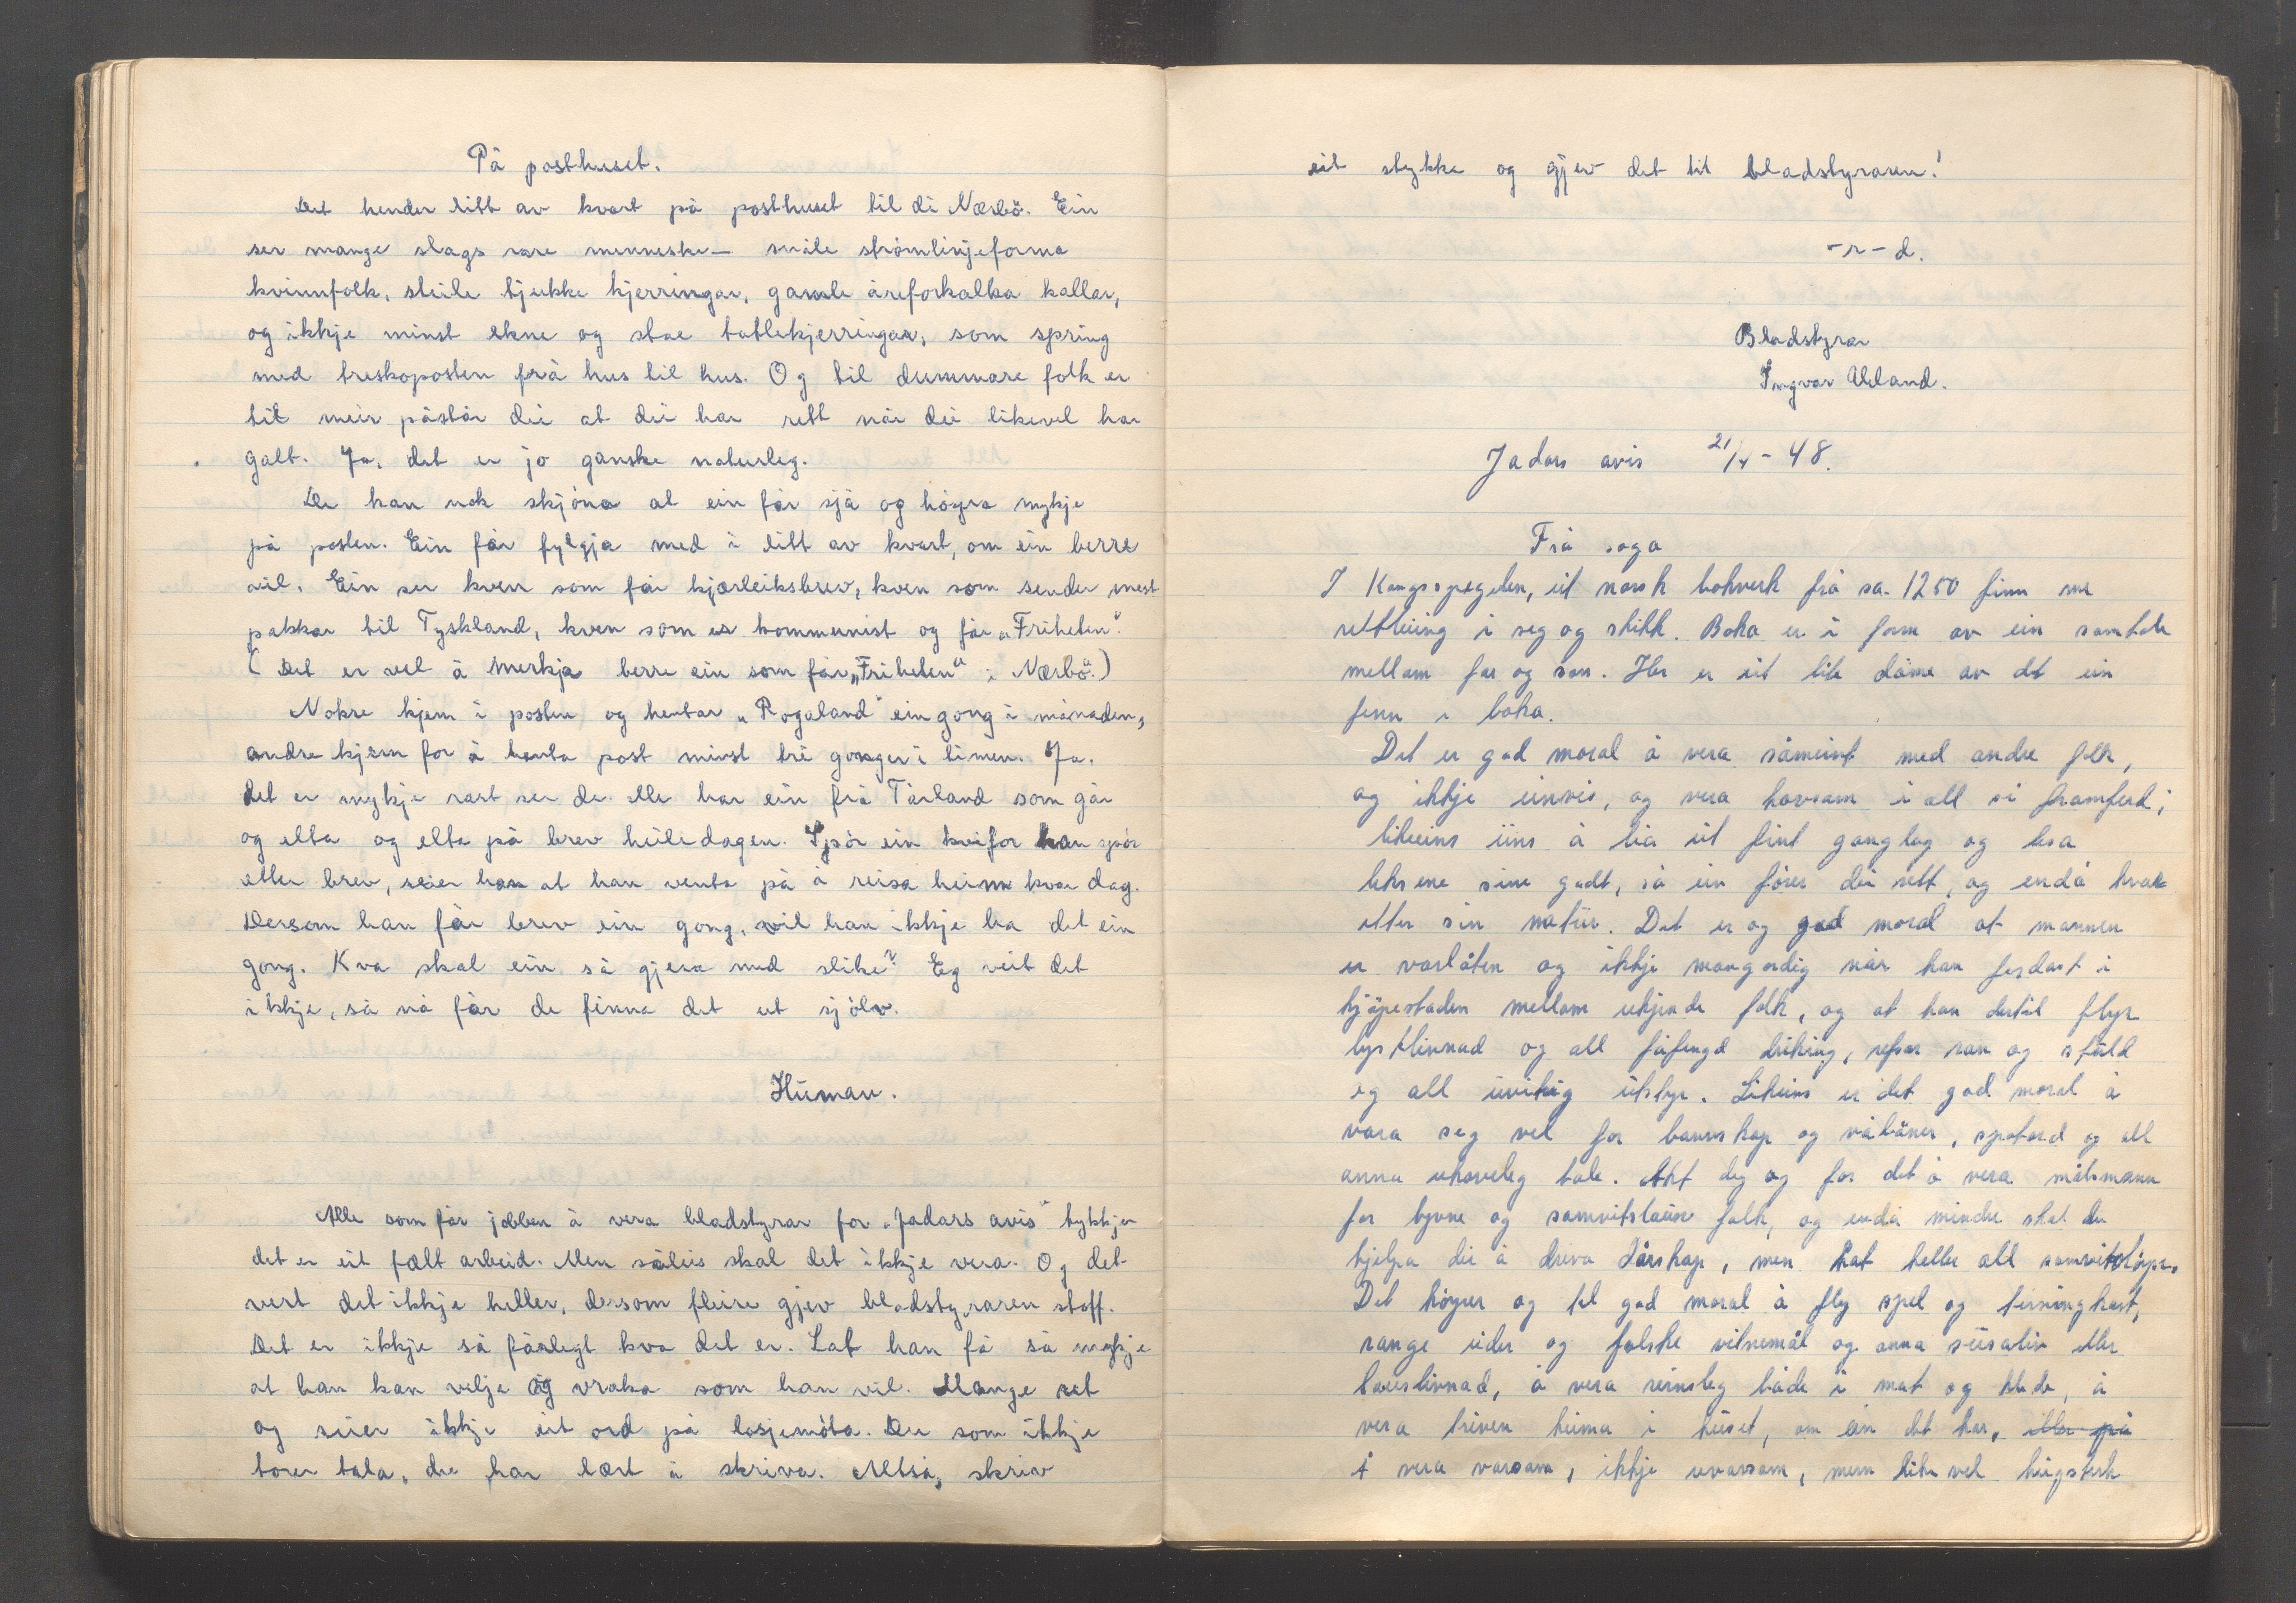 På posthuset.
Det hender litt av kvart på posthuset til di Nærbö. Ein
ser mange slags rare menneske – smale strömlinjeforma
kvinnfolk, steile tjukke kjerringar, gamle åreforkalka kallar,
og ikkje minst ekne og stae tatlekjerringar, som spring
med treskoposten frå hus til hus. Og til dummare folk er
til meir påstår dei at dei har rett når dei likevel har
galt. Ja, det er jo ganske naturleg.
De kan nok skjöna at ein får sjå og höyra mykje
på posten. Ein får fylgja med i litt av kvart, om ein berre
vil. Ein ser kven som får kjærleiksbrev, kven som sender mest
pakkar til Tyskland, kven som er kommunist og får „Friheten".
(Det er vel å merkja berre ein som får „Friheten" i Nærbö.)
Nokre kjem i posten og hentar „Rogaland" ein gong i månaden,
andre kjem for å henta post minst tri gonger i timen. Ja.
det er mykje rart ser de. Me har ein frå Tårland som går
og elta og elta på brev heile dagen. Spör ein kvifor han spör
etter brev, seier han at han venta på å reisa heim kvar dag.
Dersom han får brev ein gong, vil han ikkje ha det ein
gong. Kva skal ein så gjera med slike? Eg veit det
ikkje, så nå får de finna det ut sjölv.
Human.
Alle som får jobben å vera bladstyrar for „Jadars avis" tykkjer
det er eit fælt arbeid. Men såleis skal det ikkje vera. Og det
vert det ikkje heller, dersom fleire gjev bladstyraren stoff.
Det er ikkje så fårlegt kva det er. Lat han få så mykje
at han kan velja og vraka som han vil. Mange set
og seier ikkje eit ord på losjemöta. Dei som ikkje
torer tala, dei har lært å skriva. Altså, skriv
eit stykke og gjev det til bladstyraren!
-r-d.
Bladstyrar
Ingvar Ueland.
Jadars avis 21/4-48.
Frå soga
I Kongsspegelen, eit norsk bokverk frå ca. 1250 finn me
rettleiing i seg og skikk. Boka er i form av ein samtale
mellom far og son. Her er eit lite döme av det ein
finn i boka.
Det er god moral å vera såmeint med andre folk,
og ikkje einvis, og vera hovsam i all si framferd;
likeeins eins å lia eit fint ganglag og lesa
leksene sine godt, så ein förer dei rett, og endå kvar
etter sin natur. Det er og god moral at mannen
er varlåten og ikkje mangordig når han ferdast i
kjöpestaden mellom ukjende folk, og at han dertil flyr
lystlivnad og all fåfengd drikking, refsar ran og stuld
og all uvitug utstyr. Likeins er det god moral å
vara seg vel for bannskap og våbåner, spotord og all
anna uhoveleg tale. Akt deg og for det å vera målsmann
for tjuvne og samvitslause folk, og endå mindre skal du
hjelpa dei å driva dårskap, men hat heller all samvitslöyse.
Det höyrer og til god moral å fly spel og terningkast,
range eider og falske vitnemål og anna seisaliv eller
lauslivnad, å vera reinsleg både i mat og klede, å
vera triven heima i huset, om ein det har, eller på
å vera varsam, ikkje uvarsam, men like vel hugsterk